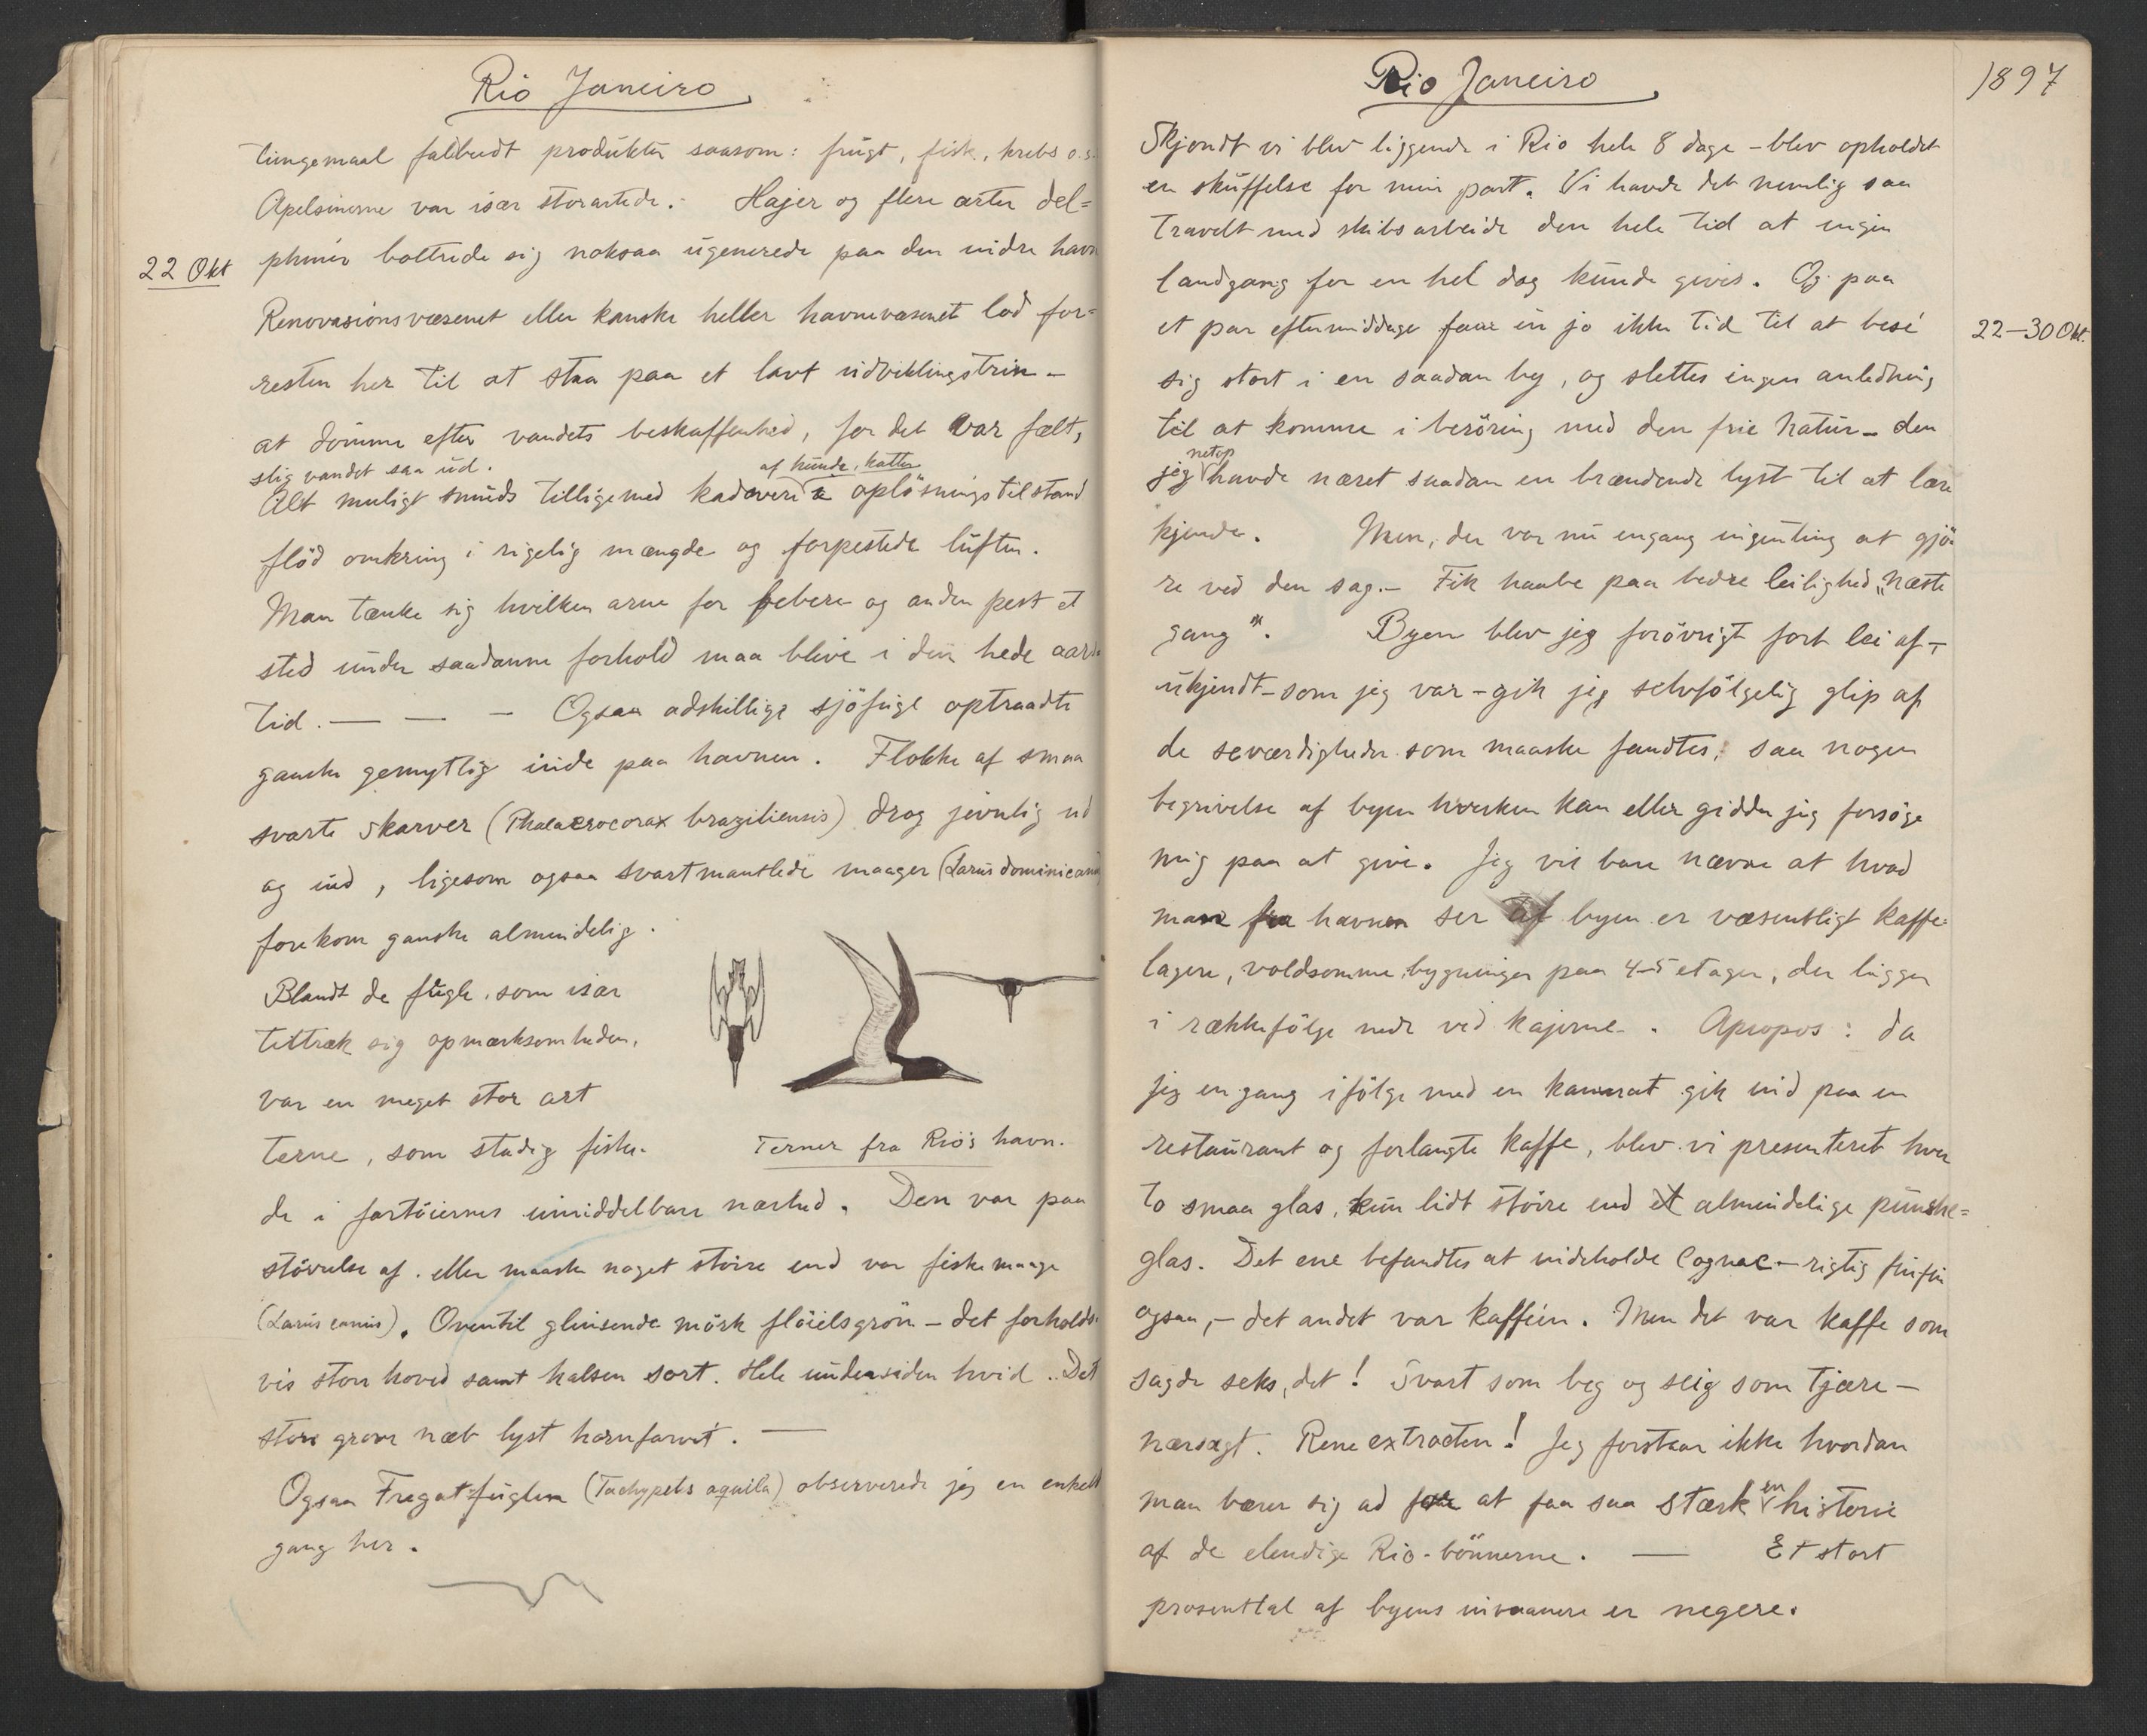 Rio Janeiro
tungemaal falbudt produkter saasom: frugt, fisk, krebs o.s.
Apelsinerne var især storartede. Hajer og flere arter del=
22 Okt
phiner boltrede sig noksaa ugenerede paa den indre havn
Renovasionsvæsenet eller kanske heller havnevæsenet lod for=
resten her til at staa paa et lavt udviklingstrin –
at dömme efter vandets beskaffenhed, for det var fælt,
slig vandet saa ud.
af hunde, katte
Alt muligt smuds tilligemed kadavere i oplösningstilstand
flöd omkring i rigelig mængde og forpestede luften.
Man tænke sig hvilken arne for febere og anden pest et
sted under saadanne forhold maa blive i den hede aars
tid. — — – Ogsaa adskillige sjöfugl optraadte
ganske gemytlig inde paa havnen. Flokke af smaa
svarte skarver (Phalacrocorax braziliensis) drog jevnlig ud
og ind, ligesom ogsaa svartmantlede maager (Larus dominicanus
forekom ganske almindelig.
Blandt de fugle, som især
tiltrak sig opmærksomheden,
var en meget stor art
terne, som stadig fiske-
Terner fra Rio's havn.
de i fartöiernes umiddelbare nærhed. Den var paa
störrelse af. eller maaske noget större end vor fiskemaage
(Larus canus). Oventil glinsende mörk flöielsgrön – det forholds-
vis store hoved samt halsen sort. Hele undersiden hvid. Det
store grove næb lyst hornfarvet. —
Ogsaa Fregatfuglen (Tachypetes aquila) observerede jeg en enkelt
gang her.
Rio Janeiro
1897
Skjöndt vi blev liggende i Rio hele 8 dage – blev opholdet
en skuffelse for min part. Vi havde det nemlig saa
travelt med skibsarbeide den hele tid at ingen
landgang for en hel dag kunde gives. Og paa
et par eftermiddage faar en jo ikke tid til at besé
22–30 Okt.
sig stort i en saadan by, og slettes ingen anledning
til at komme i beröring med den frie natur – den
netop
jeg havde næret saadan en brændende lyst til at lære
kjende. Men, der var nu engang ingenting at gjö-
re ved den sag. – Fik haabe paa bedre leilighed „næste
gang". Byen blev jeg forövrigt fort lei af –
ukjendt – som jeg var – gik jeg selvfölgelig glip af
de seværdigheder som maaske fandtes; saa nogen
begrivelse af byen hverken kan eller gidder jeg forsöge
mig paa at give. Jeg vil bare nævne at hvad
man fra havnen ser af byen er væsentligt kaffe-
lagere, voldsomme bygninger paa 4–5 etager, der ligger
i rækkefölge nede ved kajerne. Apropos: da
jeg engang ifölge med en kamerat gik ind paa en
restaurant og forlangte kaffe, blev vi presenteret hver
to smaa glas, kun lidt större end et almindelige punshe=
glas. Det ene befandtes at indeholde Cognac – rigtig finfin
ogsaa, – det andet var kaffeen. Men det var kaffe som
sagde seks, det! Svart som beg og seig som tjære –
nærsagt. Rene extracten! Jeg forstaar ikke hvordan
en
man bærer sig ad for at faa saa stærk historie
af de elendige Rio-bönnerne. — Et stort
prosenttal af byens invaanere er negere.